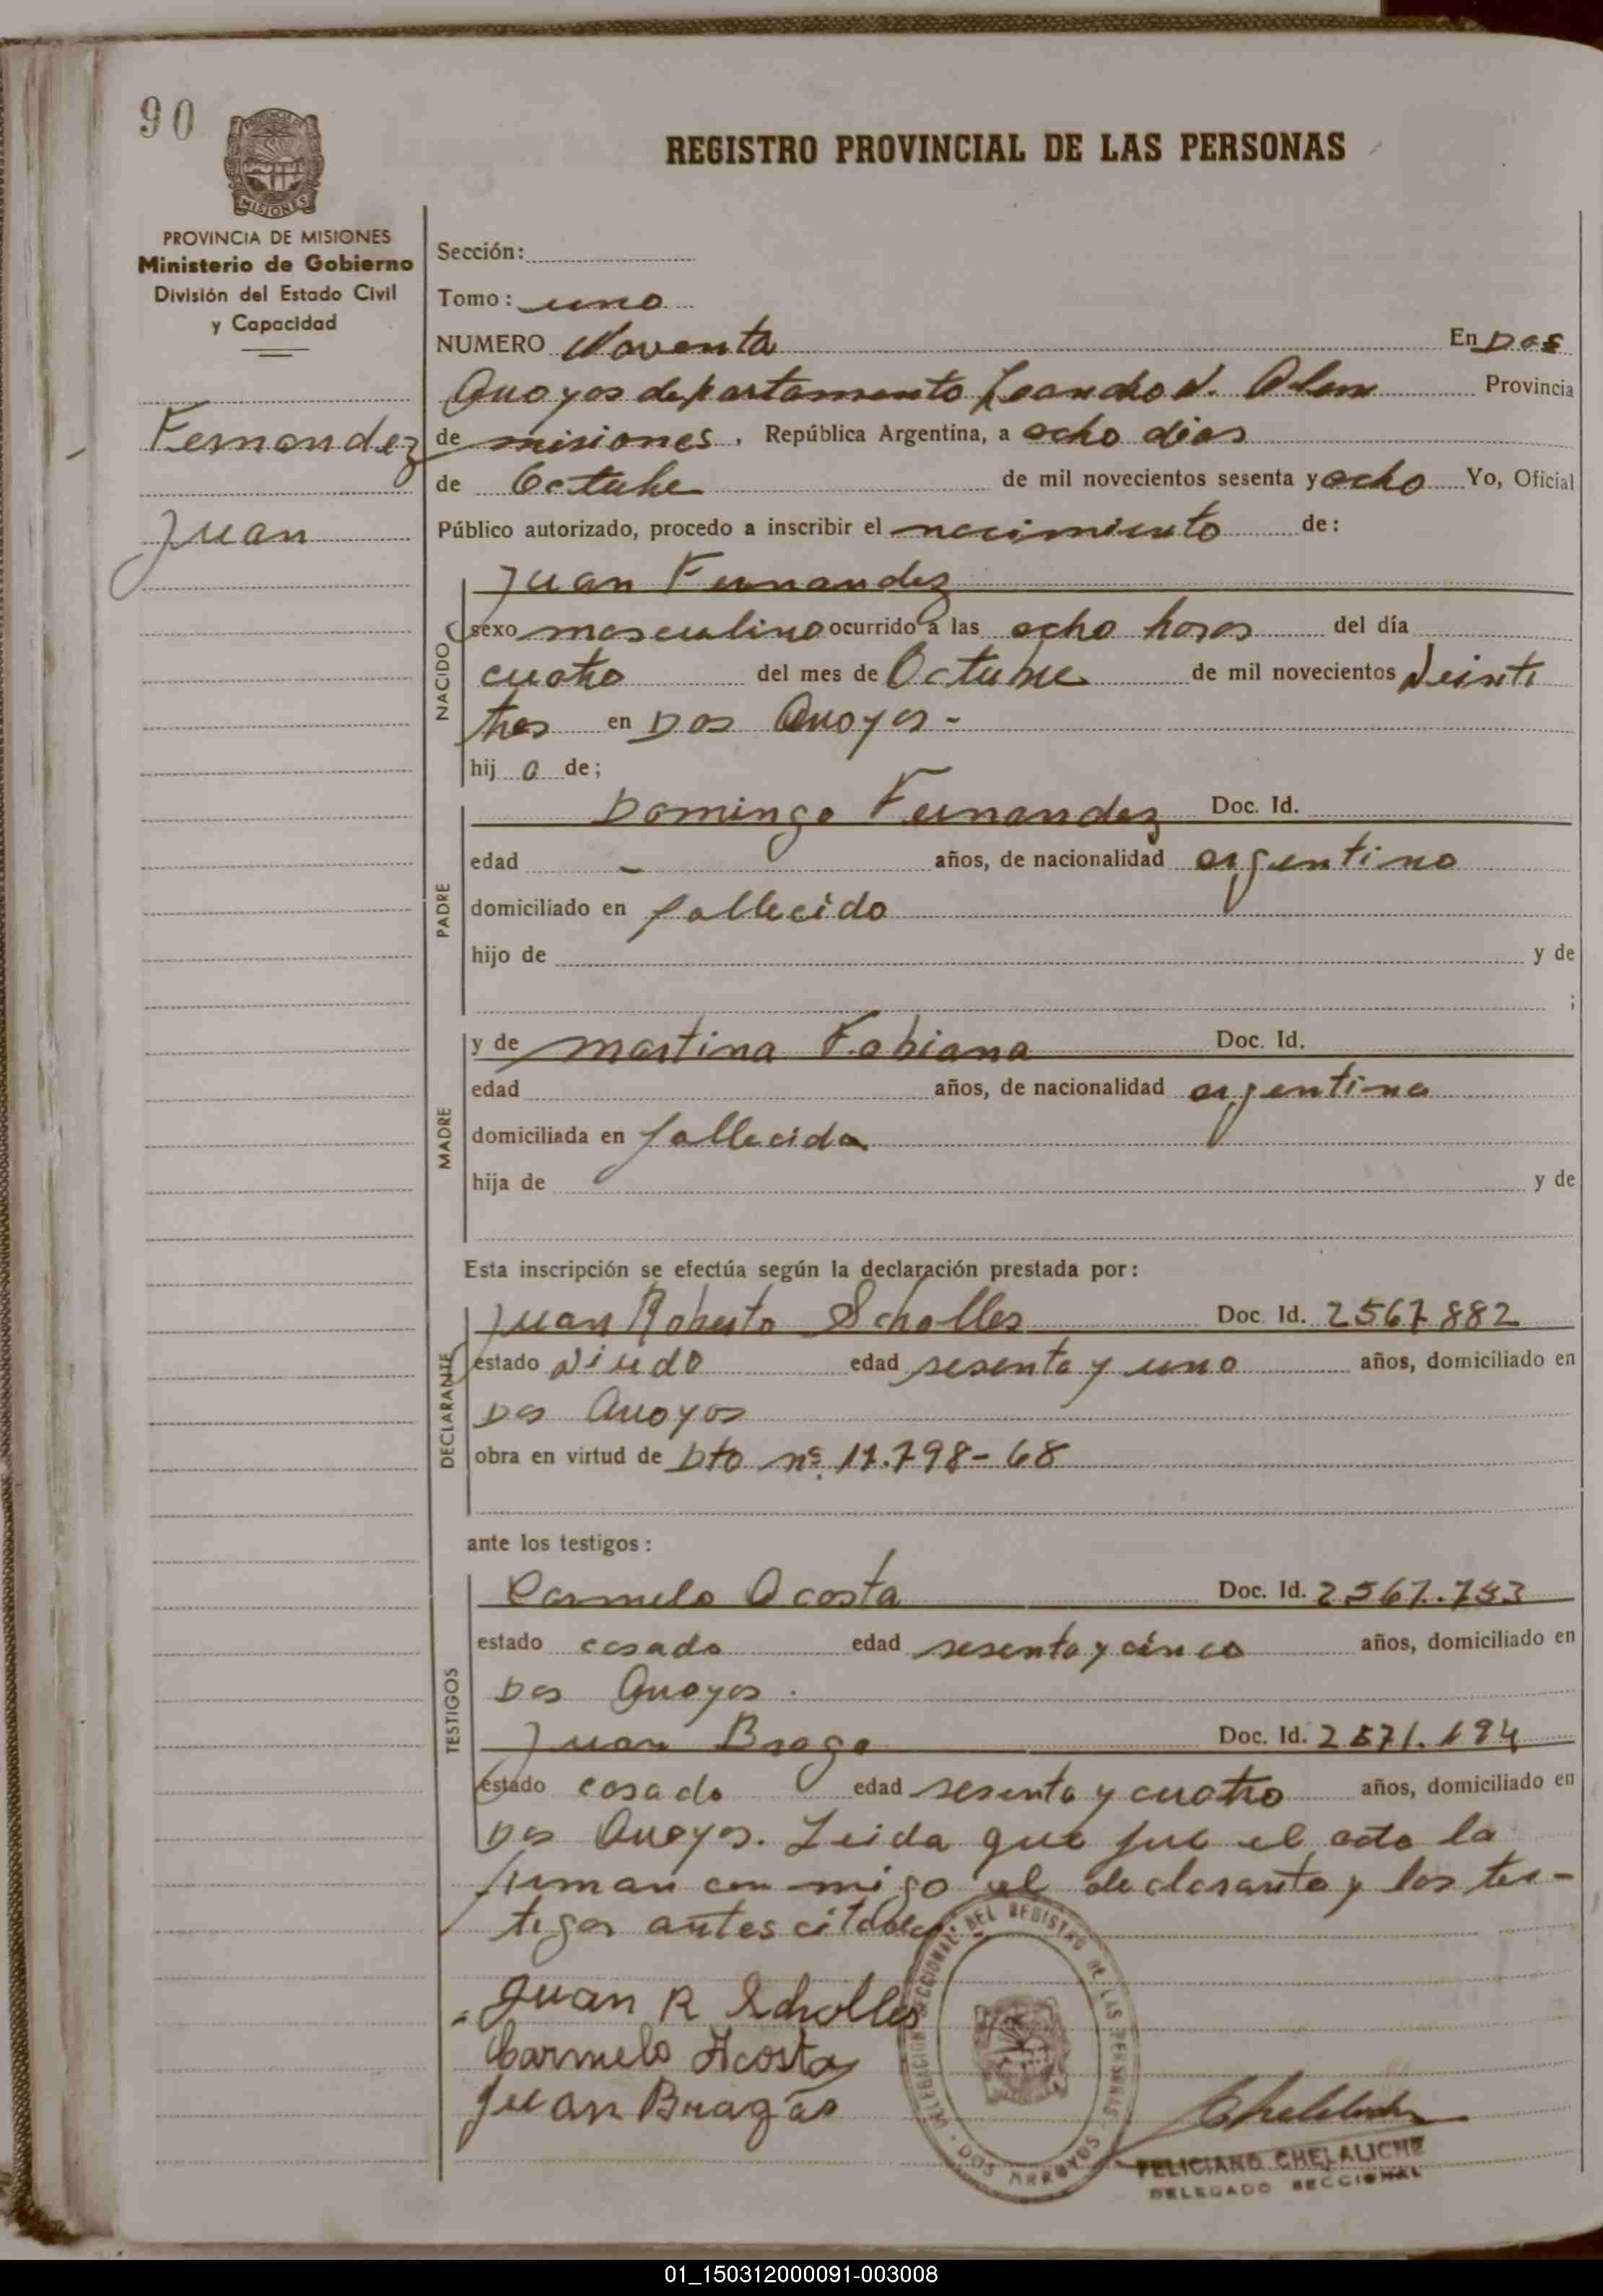 90
REGISTRO PROVINCIAL DE LAS PERSONAS
MISIONES
PROVINCIA DE MISIONES
Ministerio de Gobierno
División del Estado Civil
y Capacidad
Fernandez
Juan
Sección:
Tomo: uno
NUMERO Noventa En Dos
Arroyos departamento Leandro N. Alem Provincia
de misiones, República Argentina, a ocho dias
de Octubre de mil novecientos sesenta y ocho Yo, Oficial
Público autorizado, procedo a inscribir el nacimiento de:
NACIDO
Juan Fernandez
sexo masculino ocurrido a las ocho horas del día
cuatro del mes de Octubre de mil novecientos veinti
tres en Dos Arroyos -
hij o de;
PADRE
Domingo Fernandez Doc. Id.
edad - años, de nacionalidad argentino
domiciliado en fallecido
hijo de y de
;
MADRE
y de martina Fabiana Doc. Id.
edad años, de nacionalidad argentina
domiciliada en fallecida
hija de y de
Esta inscripción se efectúa según la declaración prestada por:
DECLARANTE
Juan Roberto Scholles Doc. Id. 2567.882
estado viudo edad sesenta y uno años, domiciliado en
Dos Arroyos
obra en virtud de Dto nº. 17.798-68
ante los testigos:
TESTIGOS
Carmelo Acosta Doc. Id. 2567.783
estado casado edad sesenta y cinco años, domiciliado en
Dos Arroyos.
Juan Braga Doc. Id. 2571.194
estado casado edad sesenta y cuatro años, domiciliado en
Dos Arroyos. Leida que fue el acta la
firman con migo el declarante y los tes-
tigos antes citados.
Juan R Scholles
Carmelo Acosta
Juan Bragas
DELEGACION SECCIONAL DEL REGISTRO DE LAS PERSONAS - DOS ARROYOS -
FELICIANO CHELALICHE
DELEGADO SECCIONAL
01_150312000091-003008